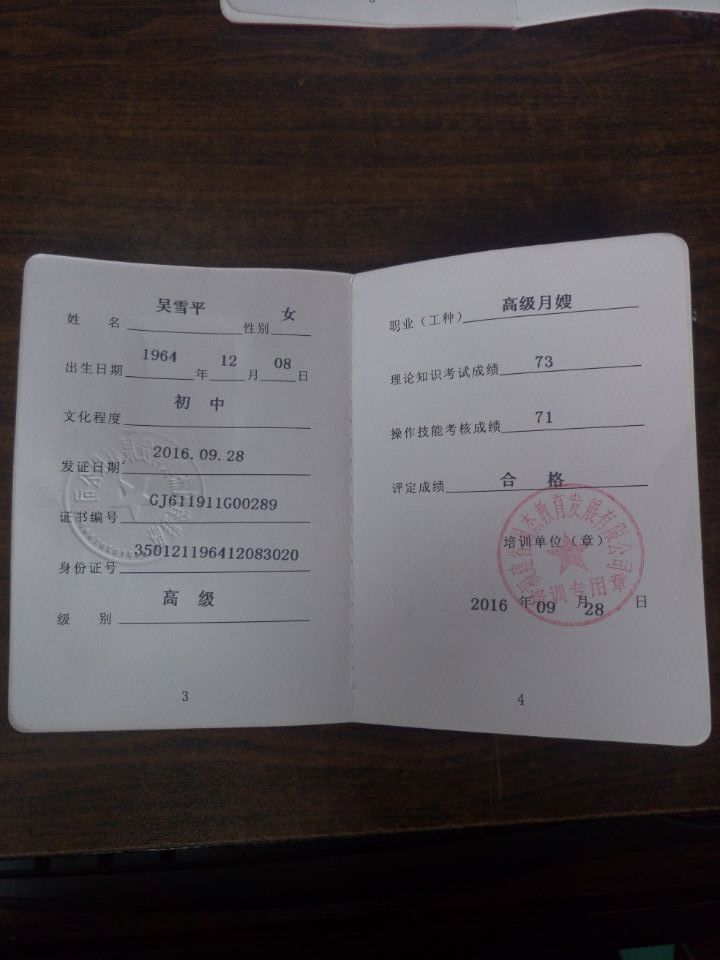 姓 名 吴雪平 性别 女
出生日期 1964 年 12 月 08 日
文化程度 初 中
发证日期 2016.09.28
证书编号 GJ611911G00289
身份证号 350121196412083020
级 别 高 级
3
职业（工种） 高级月嫂
理论知识考试成绩 73
操作技能考核成绩 71
评定成绩 合 格
杰教育发展有限公司
培训单位（章）
培训专用章
2016 年 09 月 28 日
4